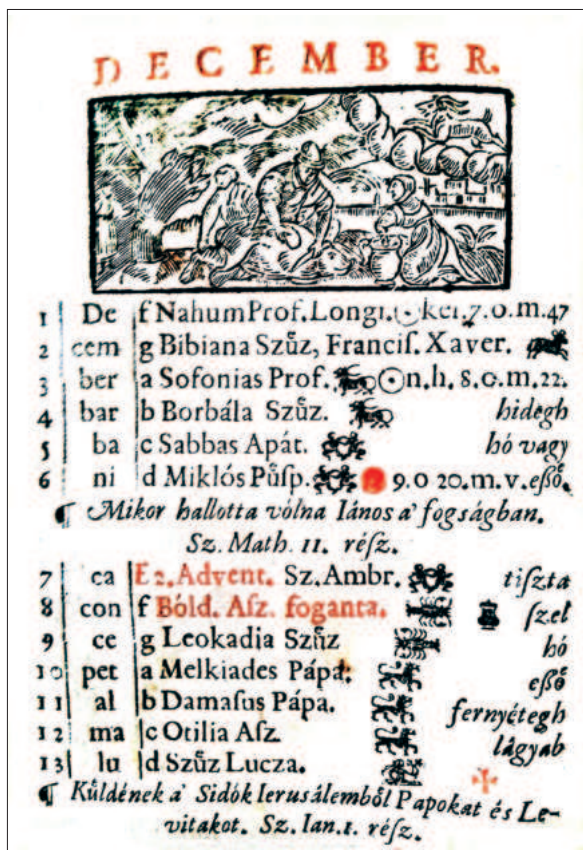 DECEMBER.
1 De f Nahum Prof. Longi. ☉ kel. 7. o. m. 47
2 cem g Bibiana Szűz, Franciſ. Xaver.
3 ber a Sofonias Prof. ☉ n. h. 8. o. m. 22.
4 bar b Borbála Szűz. hidegh
5 ba c Sabbas Apát. hó vagy
6 ni d Miklós Půſp. 9. o 20. m. v. eßő.
¶ Mikor hallotta vólna Iános a' fogságban.
Sz. Math. 11. réſz.
7 ca E 2. Advent. Sz. Ambr. tiſzta
8 con f Bóld. Aſz. foganta. ſzel
9 ce g Leokadia Szűz hó
10 pet a Melkiades Pápa. eßő
11 al b Damaſus Pápa. fernyétegh
12 ma c Otilia Aſz. lágyab
13 lu d Szűz Lucza.
¶ Kůldének a' Sidók Ierusálemből Papokat és Le-
vitakot. Sz. Ian. 1. réſz.